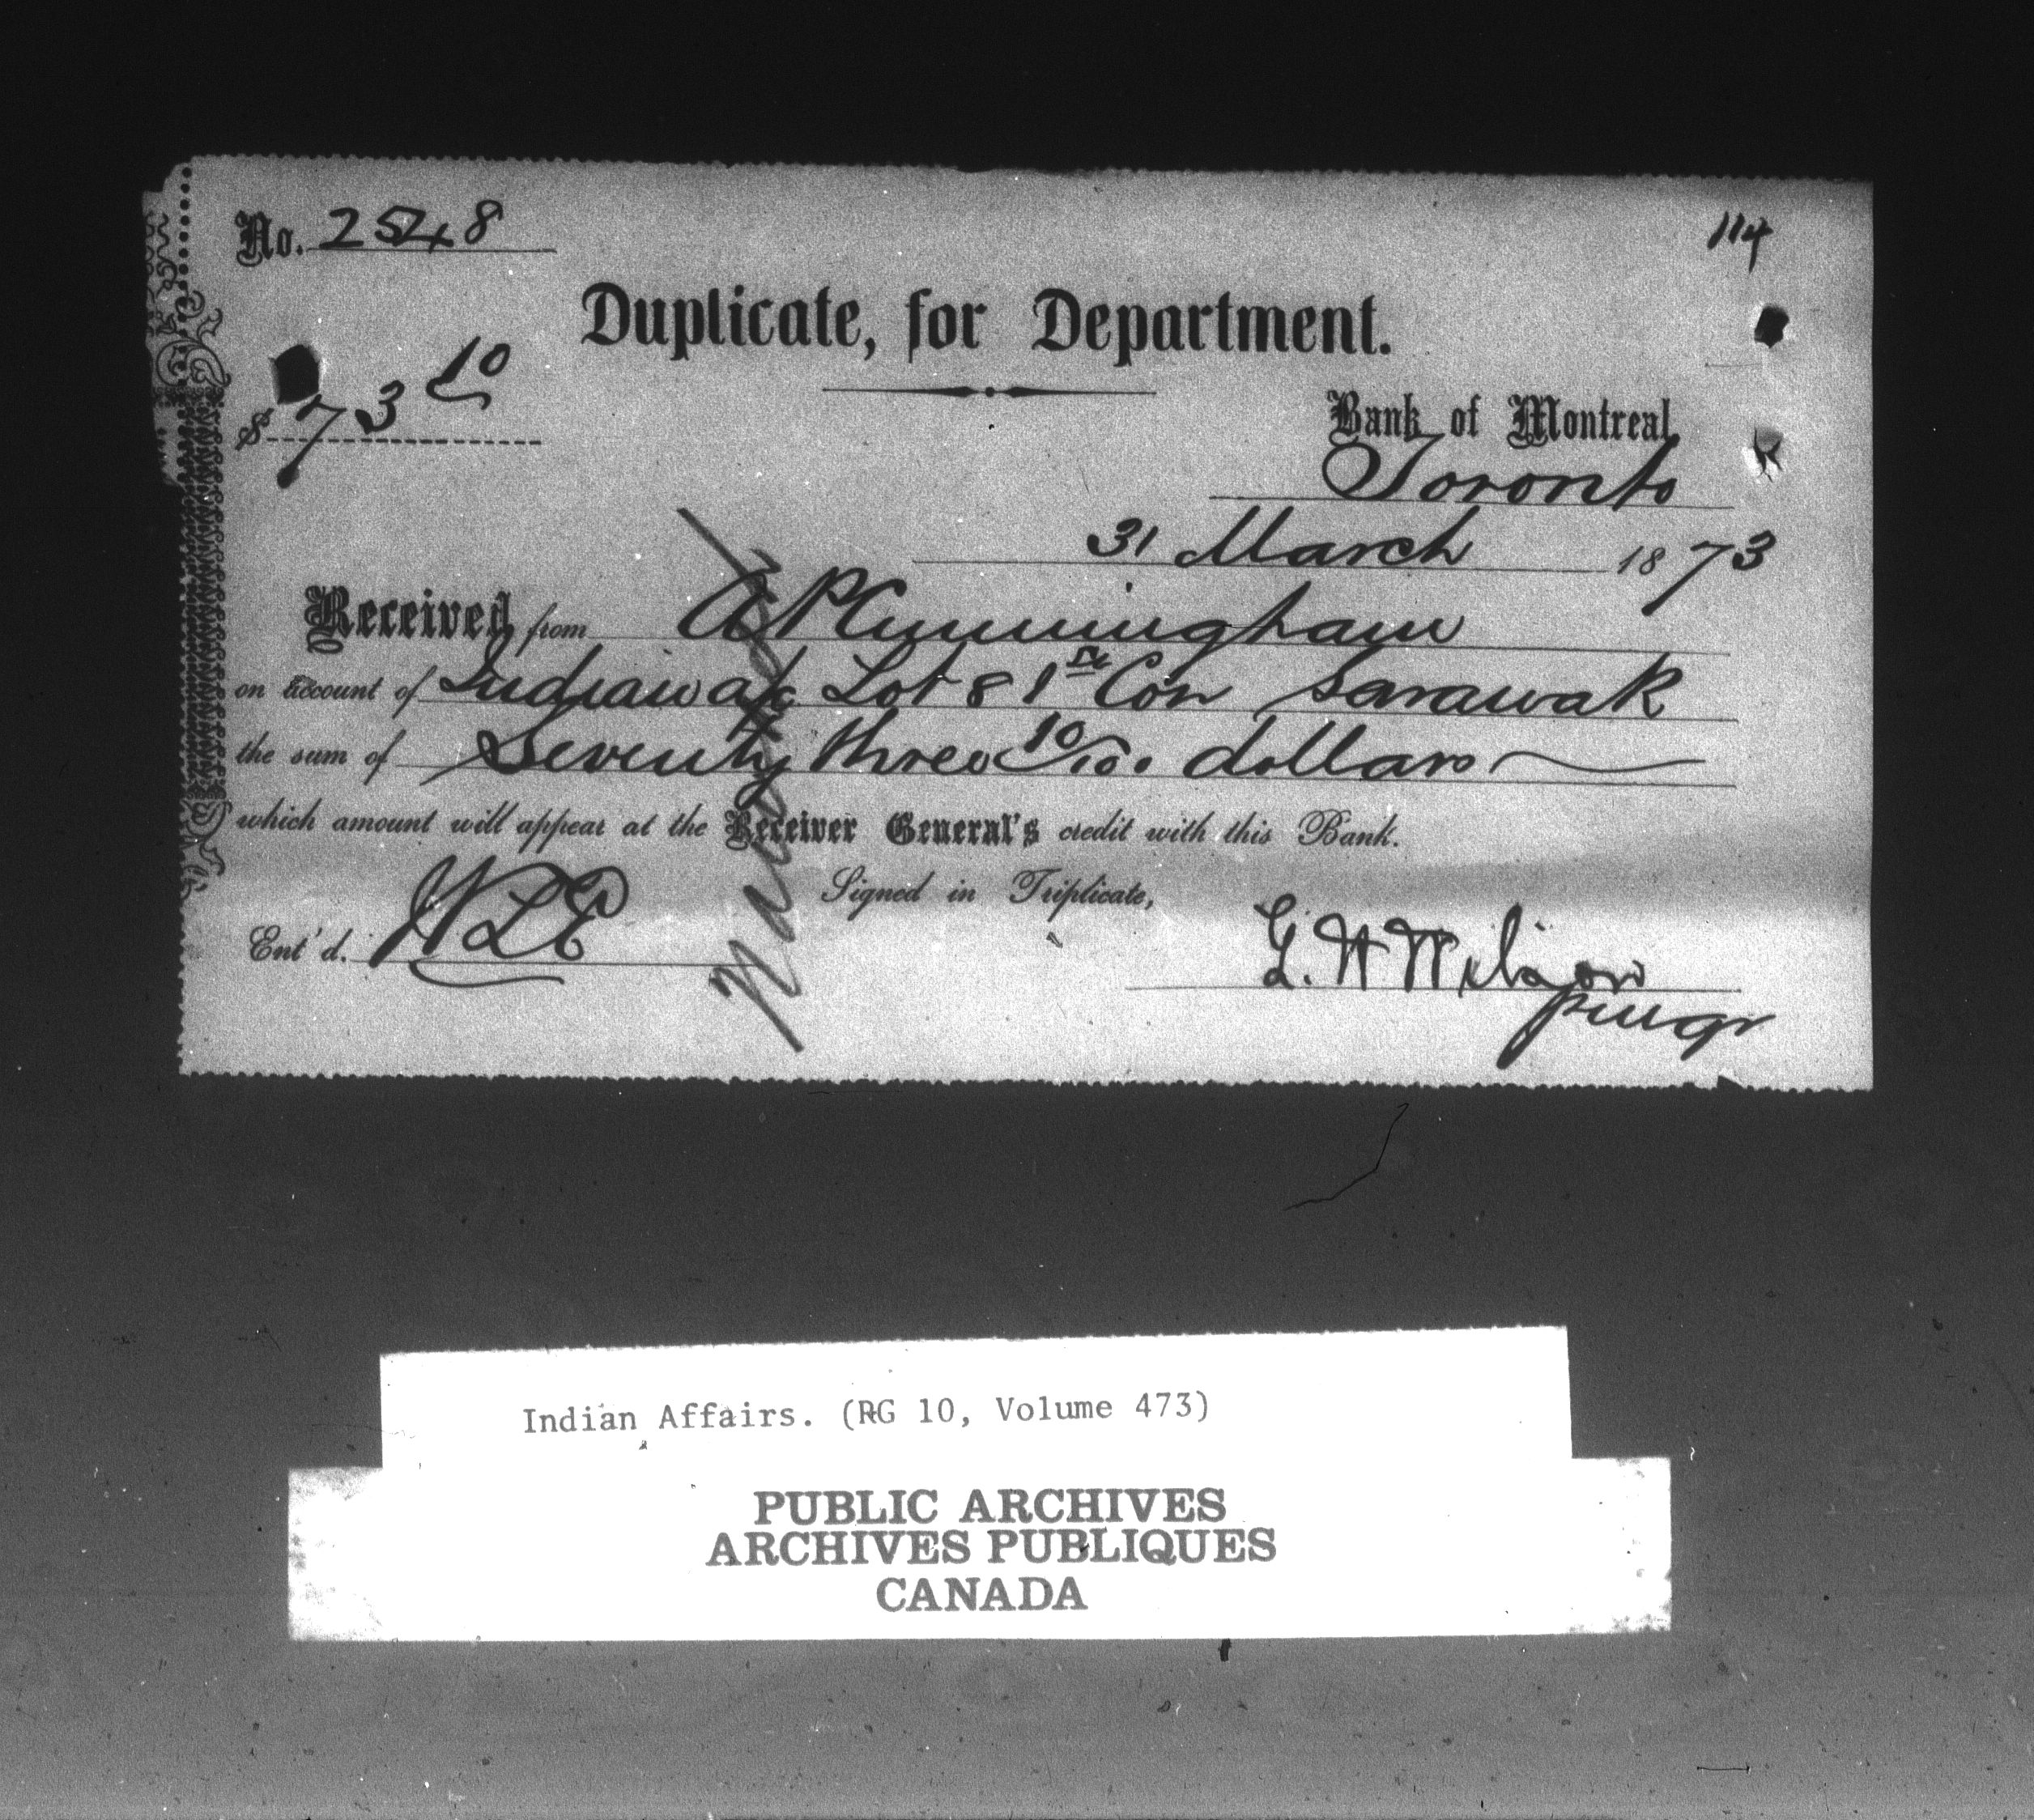 No. 2548
114
Duplicate, for Department.
$ 73 10
Bank of Montreal,
Toronto
31 March 1873
Received from A P Cunningham
on account of Indian a/c Lot 8 1st Con Sarawak
the sum of Seventy three 10/100 dollars
which amount will appear at the Receiver General's credit with this Bank.
Signed in Triplicate,
Ent'd.
G. W Wilson
Indian Affairs. (RG 10, Volume 473)
PUBLIC ARCHIVES
ARCHIVES PUBLIQUES
CANADA